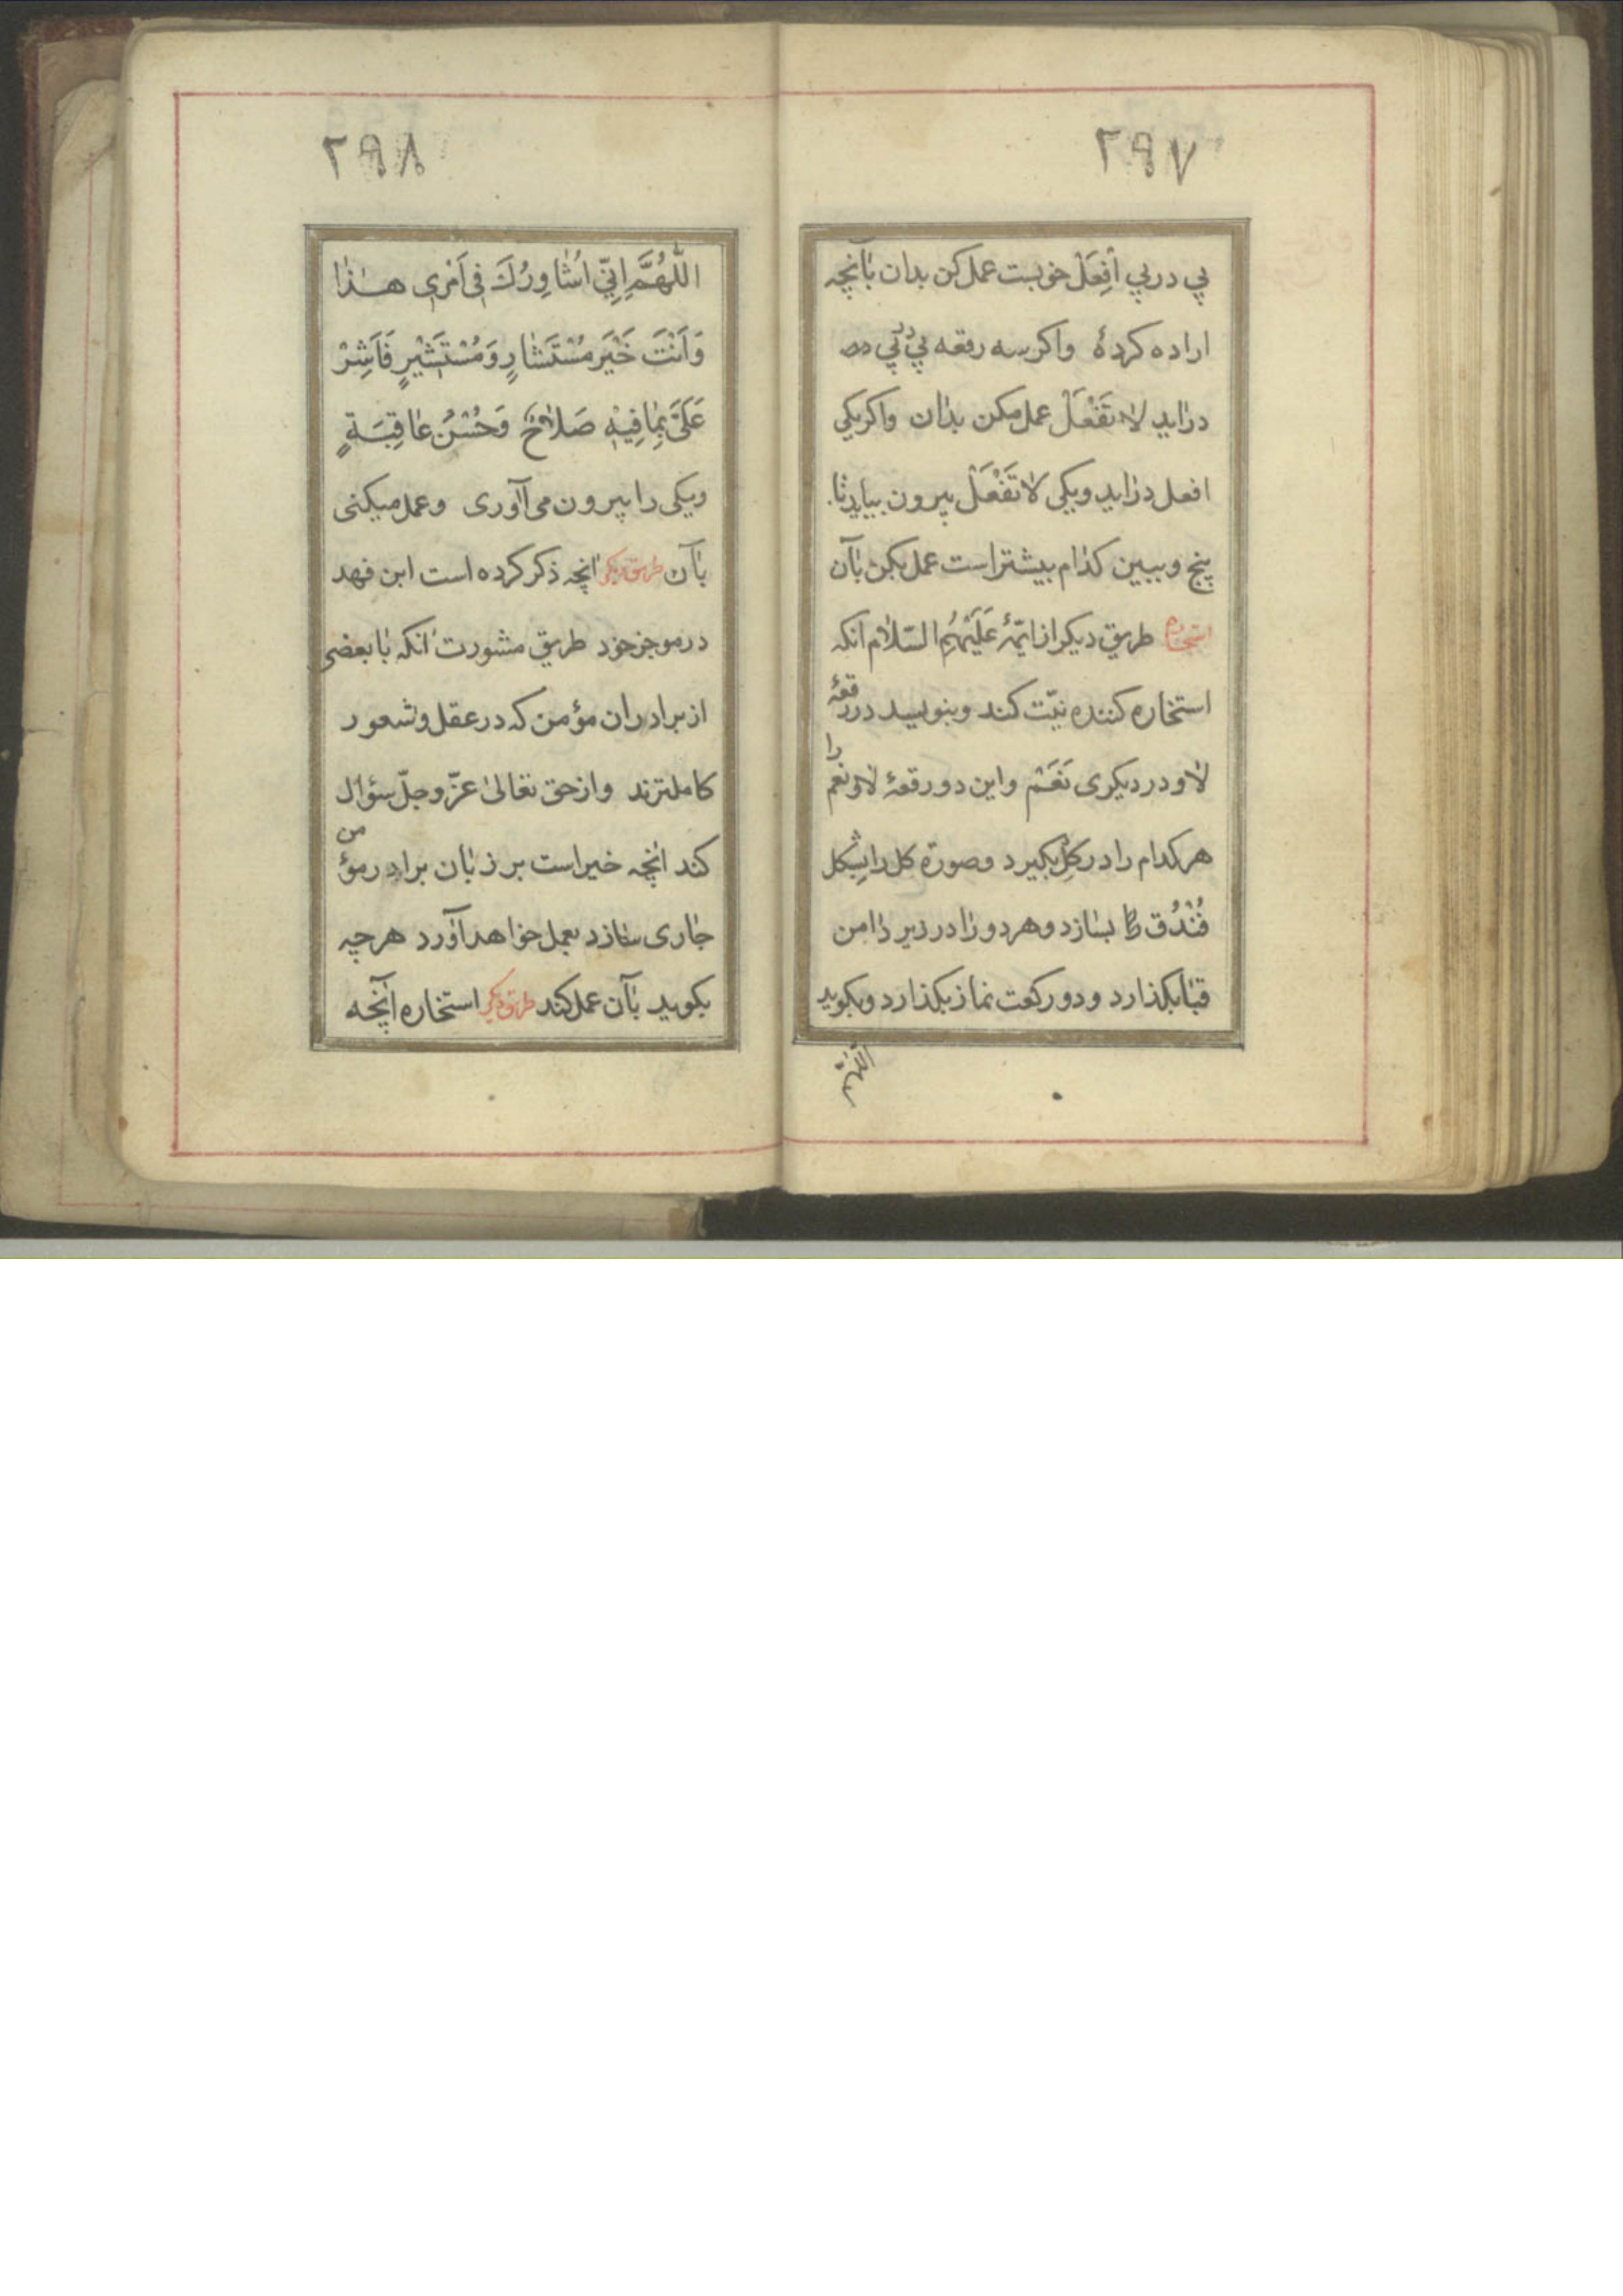 ۲۹۷
پی در پی اِفْعَلْ خوبست عمل کن بدان بآنچه
اراده کردهٔ واکر سه رقعه پی در پی
درآید لا تَفْعَلْ عمل مکن بدان واکر یکی
افعل درآید ویکی لا تَفْعَلْ بیرون بیاید تا
پنج و ببین کدام بیشتر است عمل بکن بآن
استخاره طریق دیکر از ائمّهٔ عَلَیْهِمُ السَّلام آنکه
استخاره کننده نیّت کند و بنویسد در رقعهٔ
لا و در دیکری نَعَمْ و این دو رقعهٔ لا و نعم را
هر کدام را در کِل بکیرد و صورة کل را بشکل
فُنْدُق بسازد و هر دو را در زیر دامن
قبا بکذارد و دو رکعت نماز بکذارد و بکوید
اللّهمّ
۲۹۸
اللّٰهُمَّ اِنّی اُشاوِرُكَ فی اَمْری هٰذا
وَاَنْتَ خَیْرُ مُسْتَشارٍ وَمُسْتَشیْرٍ فَاَشِرْ
عَلَیَّ بِما فِیْهِ صَلاحٌ وَحُسْنُ عاقِبَةٍ
ویکی را بیرون می آوری و عمل میکنی
بآن طریق دیکر آنچه ذکر کرده است ابن فهد
در موجز خود طریق مشورت آنکه با بعضی
از برادران مؤمن که در عقل و شعور
کاملترند و از حق تعالیٰ عزّ وجلّ سؤال
کند آنچه خیر است بر زبان برادر مؤمن
جاری سازد بعمل خواهد آورد هر چه
بکوید بآن عمل کند طریق دیکر استخاره آنچه